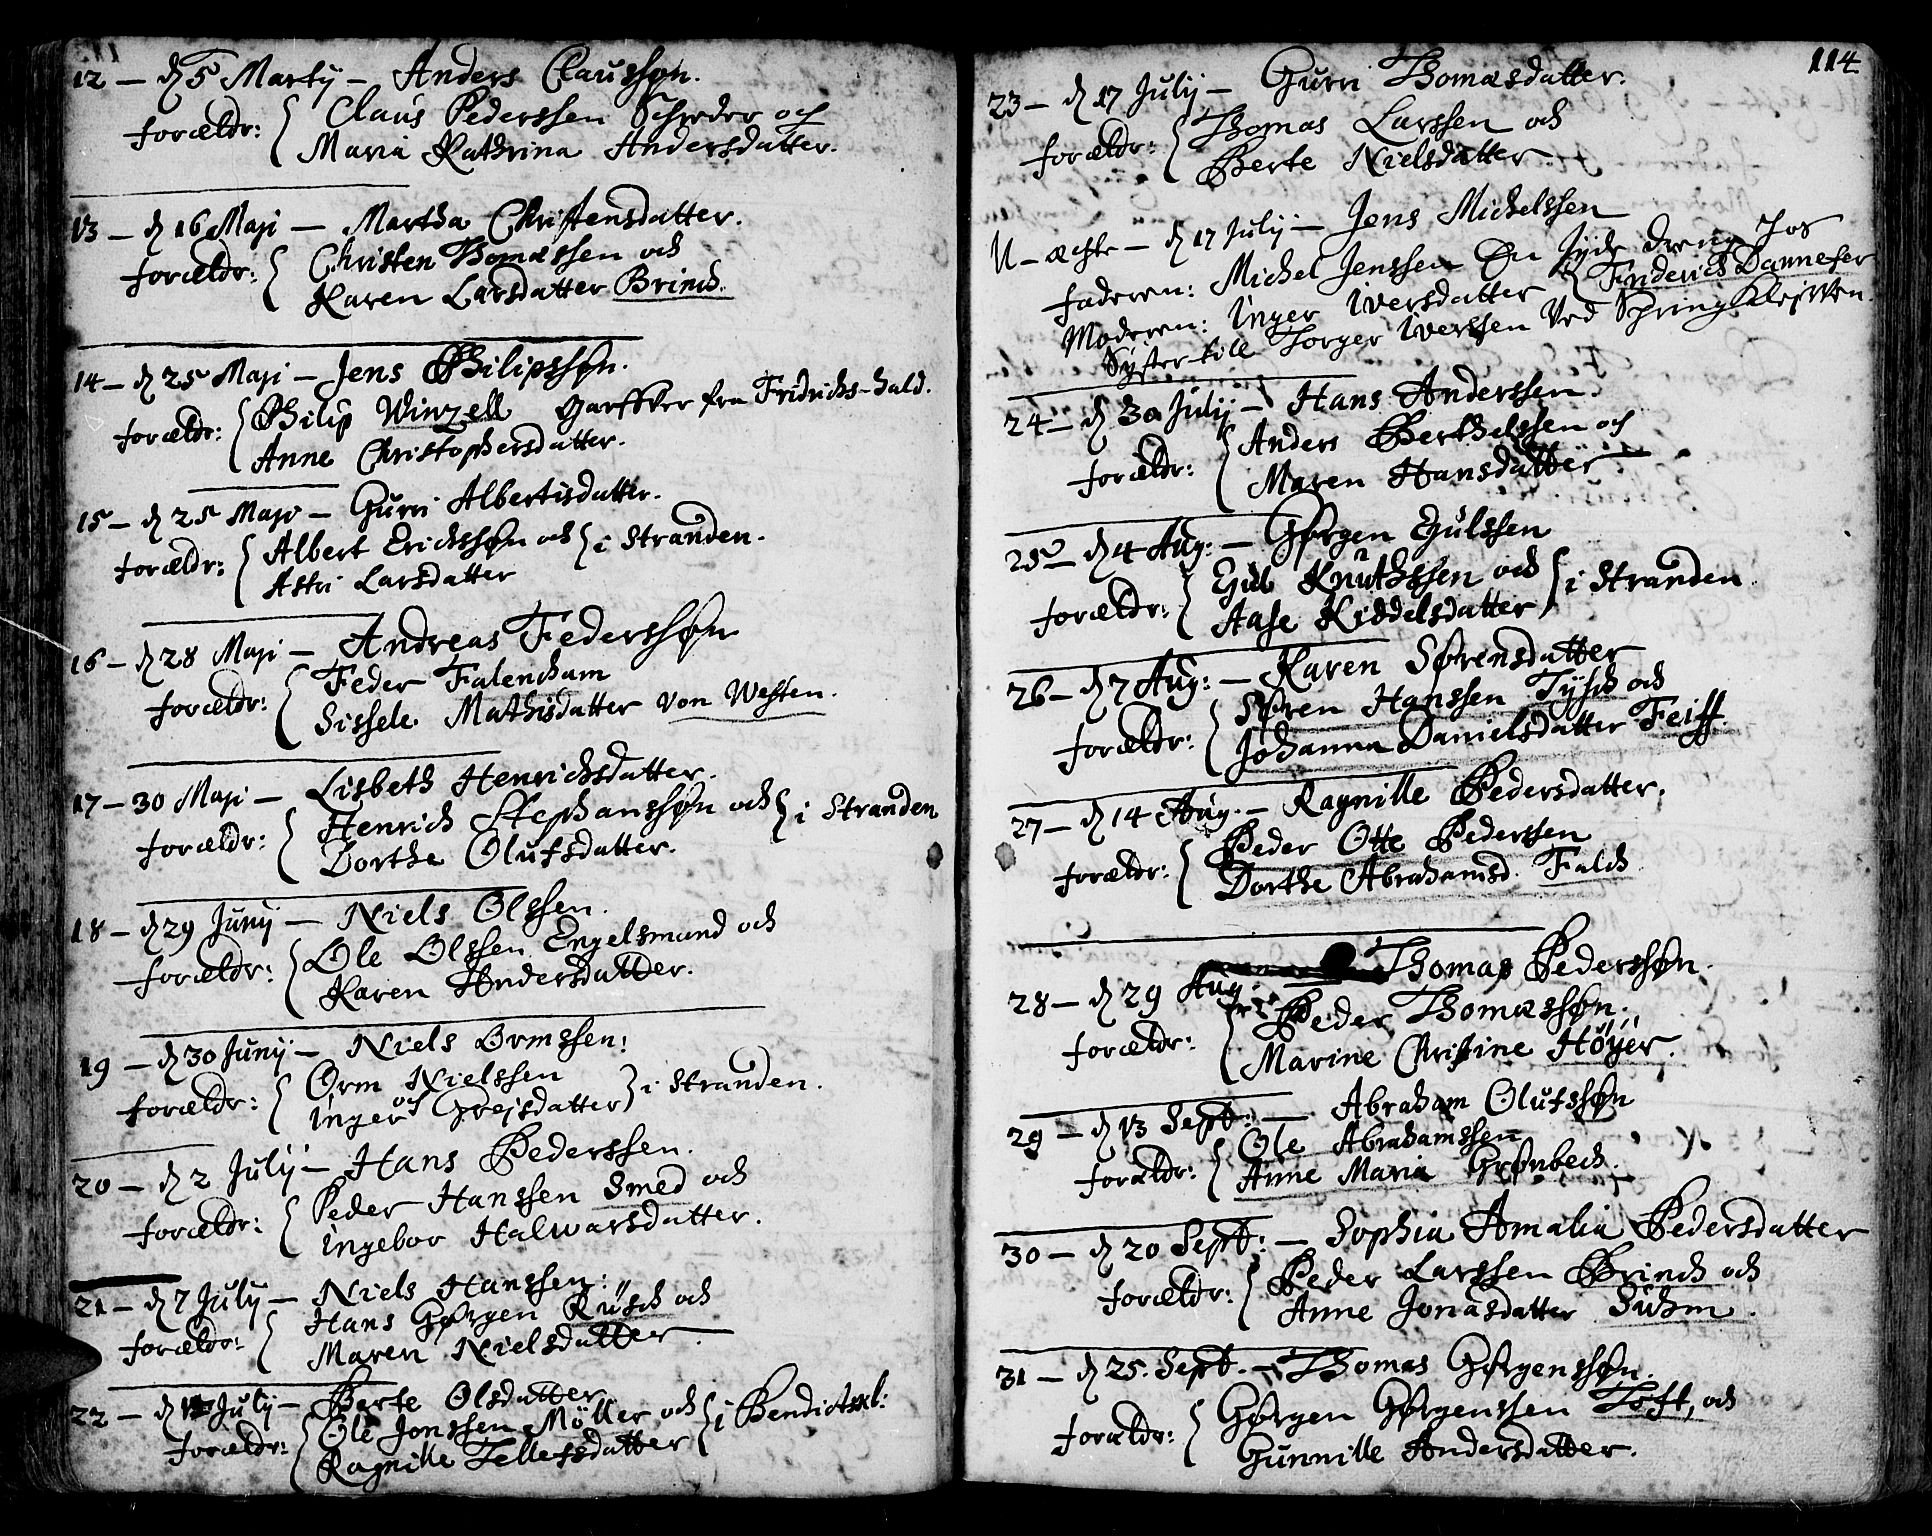 12 – d 5 Martij – Anders Claussøn.
forældr: { Claus Pederssen Schreder och
Maria Kathrina Andersdatter.
13 – d 16 Maji – Martha Christensdatter.
forældr: { Christen Thomæssen och
Karen Larsdatter Brinch.
14 – d 25 Maji – Jens Philipssøn.
forældr: { Philip Winzell Garffver fra Fridrichs-hald.
Anne Christophersdatter.
15 – d 25 Maji – Gurri Albertisdatter.
forældr: { Albert Erichssøn och } i Stranden.
Astri Larsdatter
16 – d 28 Maji – Andreas Federssøn
forældr: { Feder Falencham
Sissele Mathisdatter von Westen.
17 – 30 Maji – Lisbeth Henrichsdatter.
forældr: { Henrich Stephanssøn och } i Stranden
Dorthe Olufsdatter.
18 – d 29 Junij – Niels Olssen.
forældr: { Ole Olssen Engelsmand och
Karen Andersdatter.
19 – d 30 Junij – Niels Ormssen:
forældr: { Orm Nielssen
Inger och Grejsdatter } i Stranden.
20 – d 2 Julij – Hans Pederssen.
forældr: { Peder Hanssen Smed och
Ingebor Halwarsdatter.
21 – d 7 Julij – Niels Hanssen:
forældr: { Hans Gørgen Rusch och
Maren Nielsdatter.
22 – d Julij – Berte Olsdatter
forældr: { Ole Jonssen Møller och } i Bendictsкl:
Ragnille Tellefsdatter
114
23 – d 17 Julij – Gurri Thomæsdatter.
forældr: { Thomas Larssen och
Berte Nielsdatter
U-ægte – d 17 Julij – Jens Michelssen
faderen: Michel Jenssen En Jyde dreng hos
Moderen: Inger Iversdatter { Friderich Dannefer
Syster till Torger Iverssen Ved Spring Klejwen.
24 – d 30 Julij – Hans Anderssen.
forældr: { Anders Berthelssen och
Maren Hansdatter.
25 – d 4 Aug: – Gørgen Egulssen
forældr: { Egul Knuthssen och } i Stranden
Aase Kiddelsdatter
26 – d 7 Aug: – Karen Sørensdatter
forældr: { Søren Hanssen Tysch och
Johanna Danielsdatter Feiff.
27 – d 14 Aug. – Ragnille Pedersdatter.
forældr: { Peder Otte Pederssen
Dorthe Abrahamsd. Falch
28 – d 29 Aug. Thomas Pederssøn.
forældr: { Peder Thomæssøn.
Marine Christine Høyer.
29 – d 13 Sept: – Abraham Olufssøn
forældr: { Ole Abrahamssen
Anne Maria Grønbech.
30 – d 20 Sept: – Sophia Amalia Pedersdatter
forældr: { Peder Larssen Brinch och
Anne Jonasdatter Suhm.
31 – d 25. Sept. – Thomas Gørgenssøn.
forældr: { Gørgen Gørgenssen Toft, och
Gunnille Andersdatter.